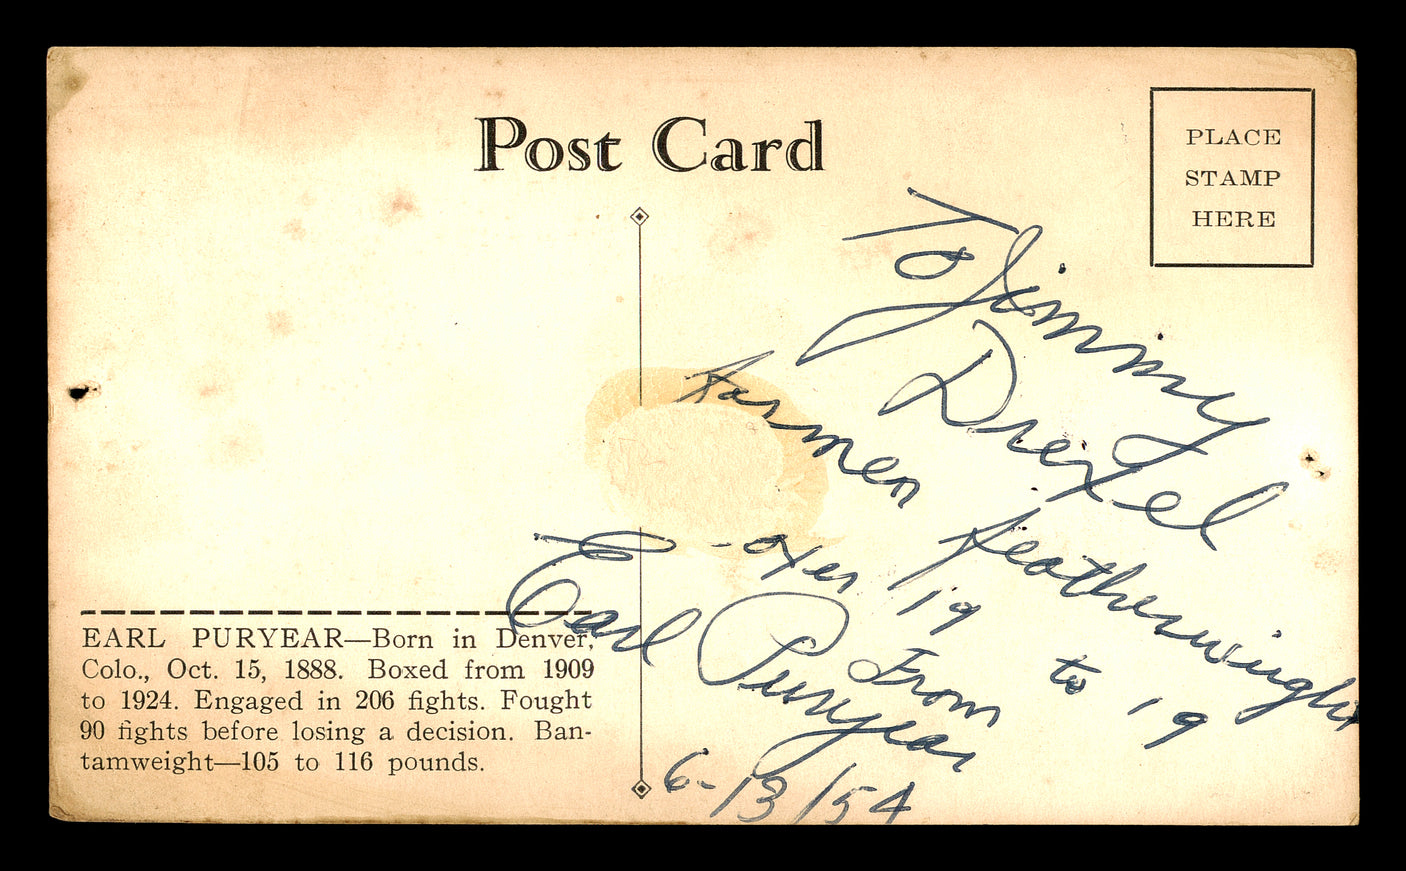 Post Card
PLACE
STAMP
HERE
To Jimmy
Drexel
former featherweight
-oxer 19 to '19
From
Earl Puryear
6-13/54
EARL PURYEAR—Born in Denver,
Colo., Oct. 15, 1888. Boxed from 1909
to 1924. Engaged in 206 fights. Fought
90 fights before losing a decision. Ban-
tamweight—105 to 116 pounds.